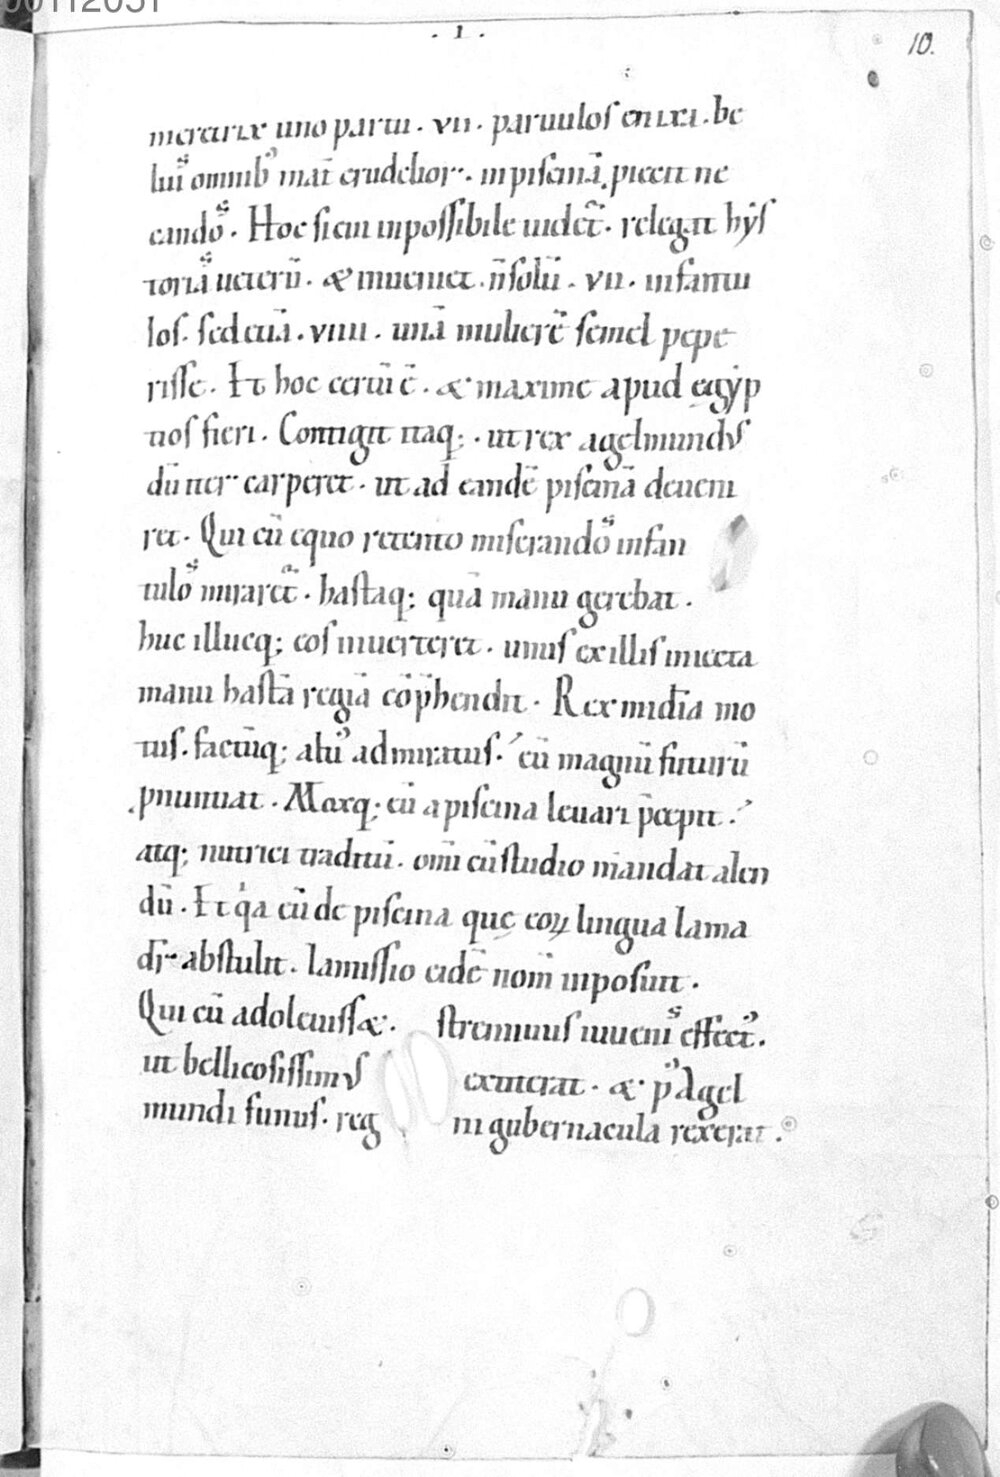 00112051
· I ·
10.
meretrix uno partu · vii · paruulos enixa · be
luis̄ omnib; mat̄ crudelior · inpiscinā piecit ne
candos̄ · Hoc sicui inpossibile uidet̄ · relegat hys
toriās ueterū · & inueniet · n̄ solū · vii · infantu
los · sed etiā · viiii · unā mulierē semel pepe
risse · Et hoc certū ē · & maxime apud egyp
tios fieri · Contigit itaq; · ut rex agelmundus
dū iter carperet · ut ad eandē piscinā deueni
ret · Qui cū equo retento miserandos̄ infan
tulos miraret̄ · hastaq; quā manu gerebat ·
huc illucq; eos inuerteret · unus ex illis iniecta
manu hastā regiā cōp̄hendit · Rex mīdia mo
tus · factūq; altius admiratus · eū magnū futurū
pnuntiat · Moxq; eū apiscina leuari p̄cepit ·
atq; nutrici traditū · om̄i cū studio mandat alen
dū · Et q̇a eū de piscina quę eoꝝ lingua lama
dr̄ abstulit · lamissio eidē nom̄ inposuit ·
Qui cū adoleuiss& · strenuus iuuenis effect; ·
ut bellicosissimus extiterat · & p; Agel
mundi funus · regni gubernacula rexerat ·